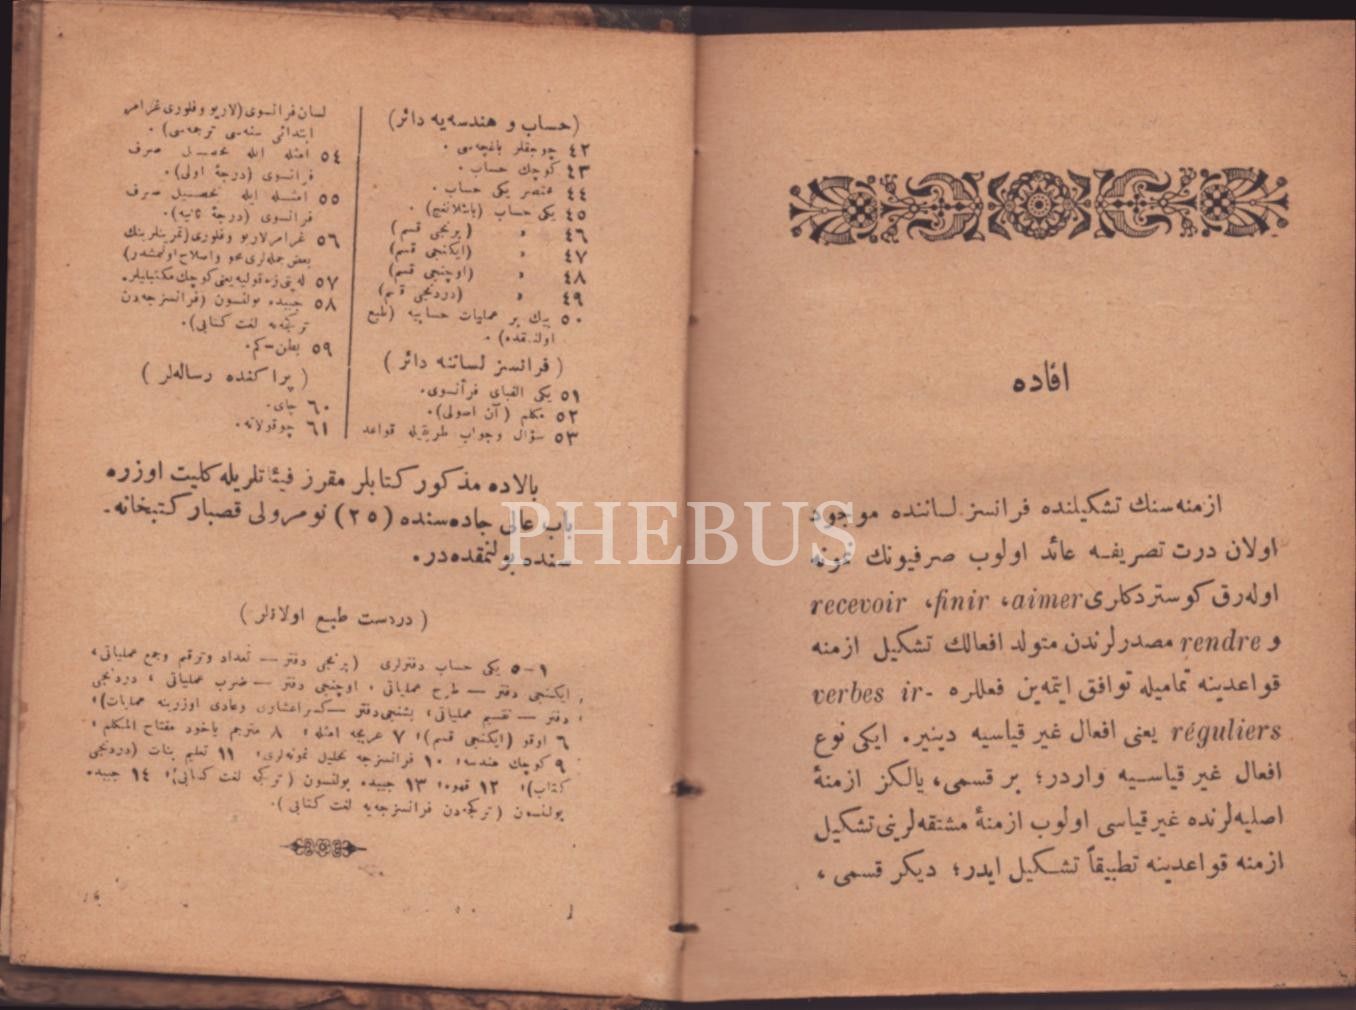 (حساب و هندسه‌یه دائر)
٤٢ چوجقلر باغچه‌سی .
٤٣ کوچك حساب .
٤٤ مختصر یکی حساب .
٤٥ یکی حساب (باشلانغیج) .
٤٦ » (برنجی قسم)
٤٧ » (ایکنجی قسم)
٤٨ » (اوچنجی قسم)
٤٩ » (دردنجی قسم)
٥٠ بیك بر عملیات حسابیه (طبع
اولنمقده) .
( فرانسز لساننه دائر )
٥١ یکی الفبای فرانسوی.
٥٢ مکلم (آن اصولی).
٥٣ سؤال وجواب طریقیله قواعد
لسان فرانسوی (لاریو وفلوری غرامر
ابتدائی سنه‌سی ترجمه‌سی) .
٥٤ امثله ایله تحصیل صرف
فرانسوی (درجهٔ اولی).
٥٥ امثله ایله تحصیل صرف
فرانسوی (درجهٔ ثانیه).
٥٦ غرامر لاریو وفلوری (تمرینلرینك
بعض جمله‌لری محو واصلاح اولنمشدر)
٥٧ یعنی کوچك مکتبلیلر.
٥٨ جیبده بولنسون (فرانسزجه‌دن
ترکجه‌یه لغت کتابی).
٥٩
( پراکنده رساله‌لر )
٦٠ چای.
٦١ چوقولاته.
بالاده مذکور کتابلر مقرز فیئاتلریله کلیت اوزره
باب عالی جاده‌سنده (٢٥) نومرولی قصبار کتبخانه‌-
سنده بولنمقده‌در.
( دردست طبع اولانلر )
١-٥ یکی حساب دفترلری (برنجی دفتر — تعداد وترقیم وجمع عملیاتی،
ایکنجی دفتر — طرح عملیاتی ، اوچنجی دفتر — ضرب عملیاتی ، دردنجی
دفتر — تقسیم عملیاتی، بشنجی دفتر — کسر اعشاری وعادی اوزرینه عملیات)؛
٦ اوقو (ایکنجی قسم)؛ ٧ امثله؛ ٨ مترجم یاخود مفتاح المکلم ؛
٩ کوچك هندسه؛ ١٠ فرانسزجه تحلیل نمونه‌لری؛ ١١ تعلیم بنات (دردنجی
کتاب)؛ ١٢ قهوه؛ ١٣ جیبده بولنسون ( ترکجه لغت کتابی)؛ ١٤ جیبده
بولنسون (ترکجه‌دن فرانسزجه‌یه لغت کتابی).
افاده
ازمنه‌سنك تشکیلنده فرانسز لساننده موجود
اولان درت تصریفه عائد اولوب صرفیونك نمونه
اوله‌رق کوستردکاری aimer، finir، recevoir
و rendre مصدرلرندن متولد افعالك تشکیل ازمنه
قواعدینه تمامیله توافق ایتمه‌ین فعللره verbes ir-
réguliers یعنی افعال غیر قیاسیه دینیر. ایکی نوع
افعال غیر قیاسیه واردر؛ بر قسمی، یالکز ازمنهٔ
اصلیه‌لرنده غیر قیاسی اولوب ازمنهٔ مشتقه‌لرینی تشکیل
ازمنه قواعدینه تطبیقاً تشکیل ایدر؛ دیکر قسمی ،
PHEBUS